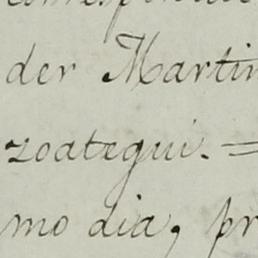 der Martin
zoategui. =
mo dia, pr